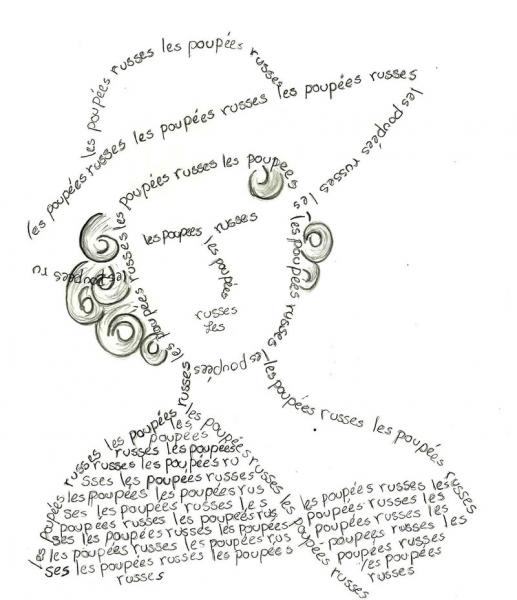 les poupées russes les poupées russes
les poupées russes les poupées russes les poupées russes
les poupées russes
les poupées russes les poupées
russes les poupées russes les
les poupées russes
les poupées
russes
les
les poupées russes
les poupées ru
les poupées
les poupées russes les poupées russes
les poupées russes les poupées russes
les poupées russes les poupées russes
les poupées
russes les poupées
russes les poupées ru
sses les poupées russes
les poupées les poupées rus
ses les poupées russes les
poupées russes les poupées rus
ses les poupées russes les poupées
les poupées russes les poupées rus
ses les poupées russes les poupées
russes
les poupées russes les
poupées russes les
poupées russes les
poupées russes les
poupées russes
les poupées
russes